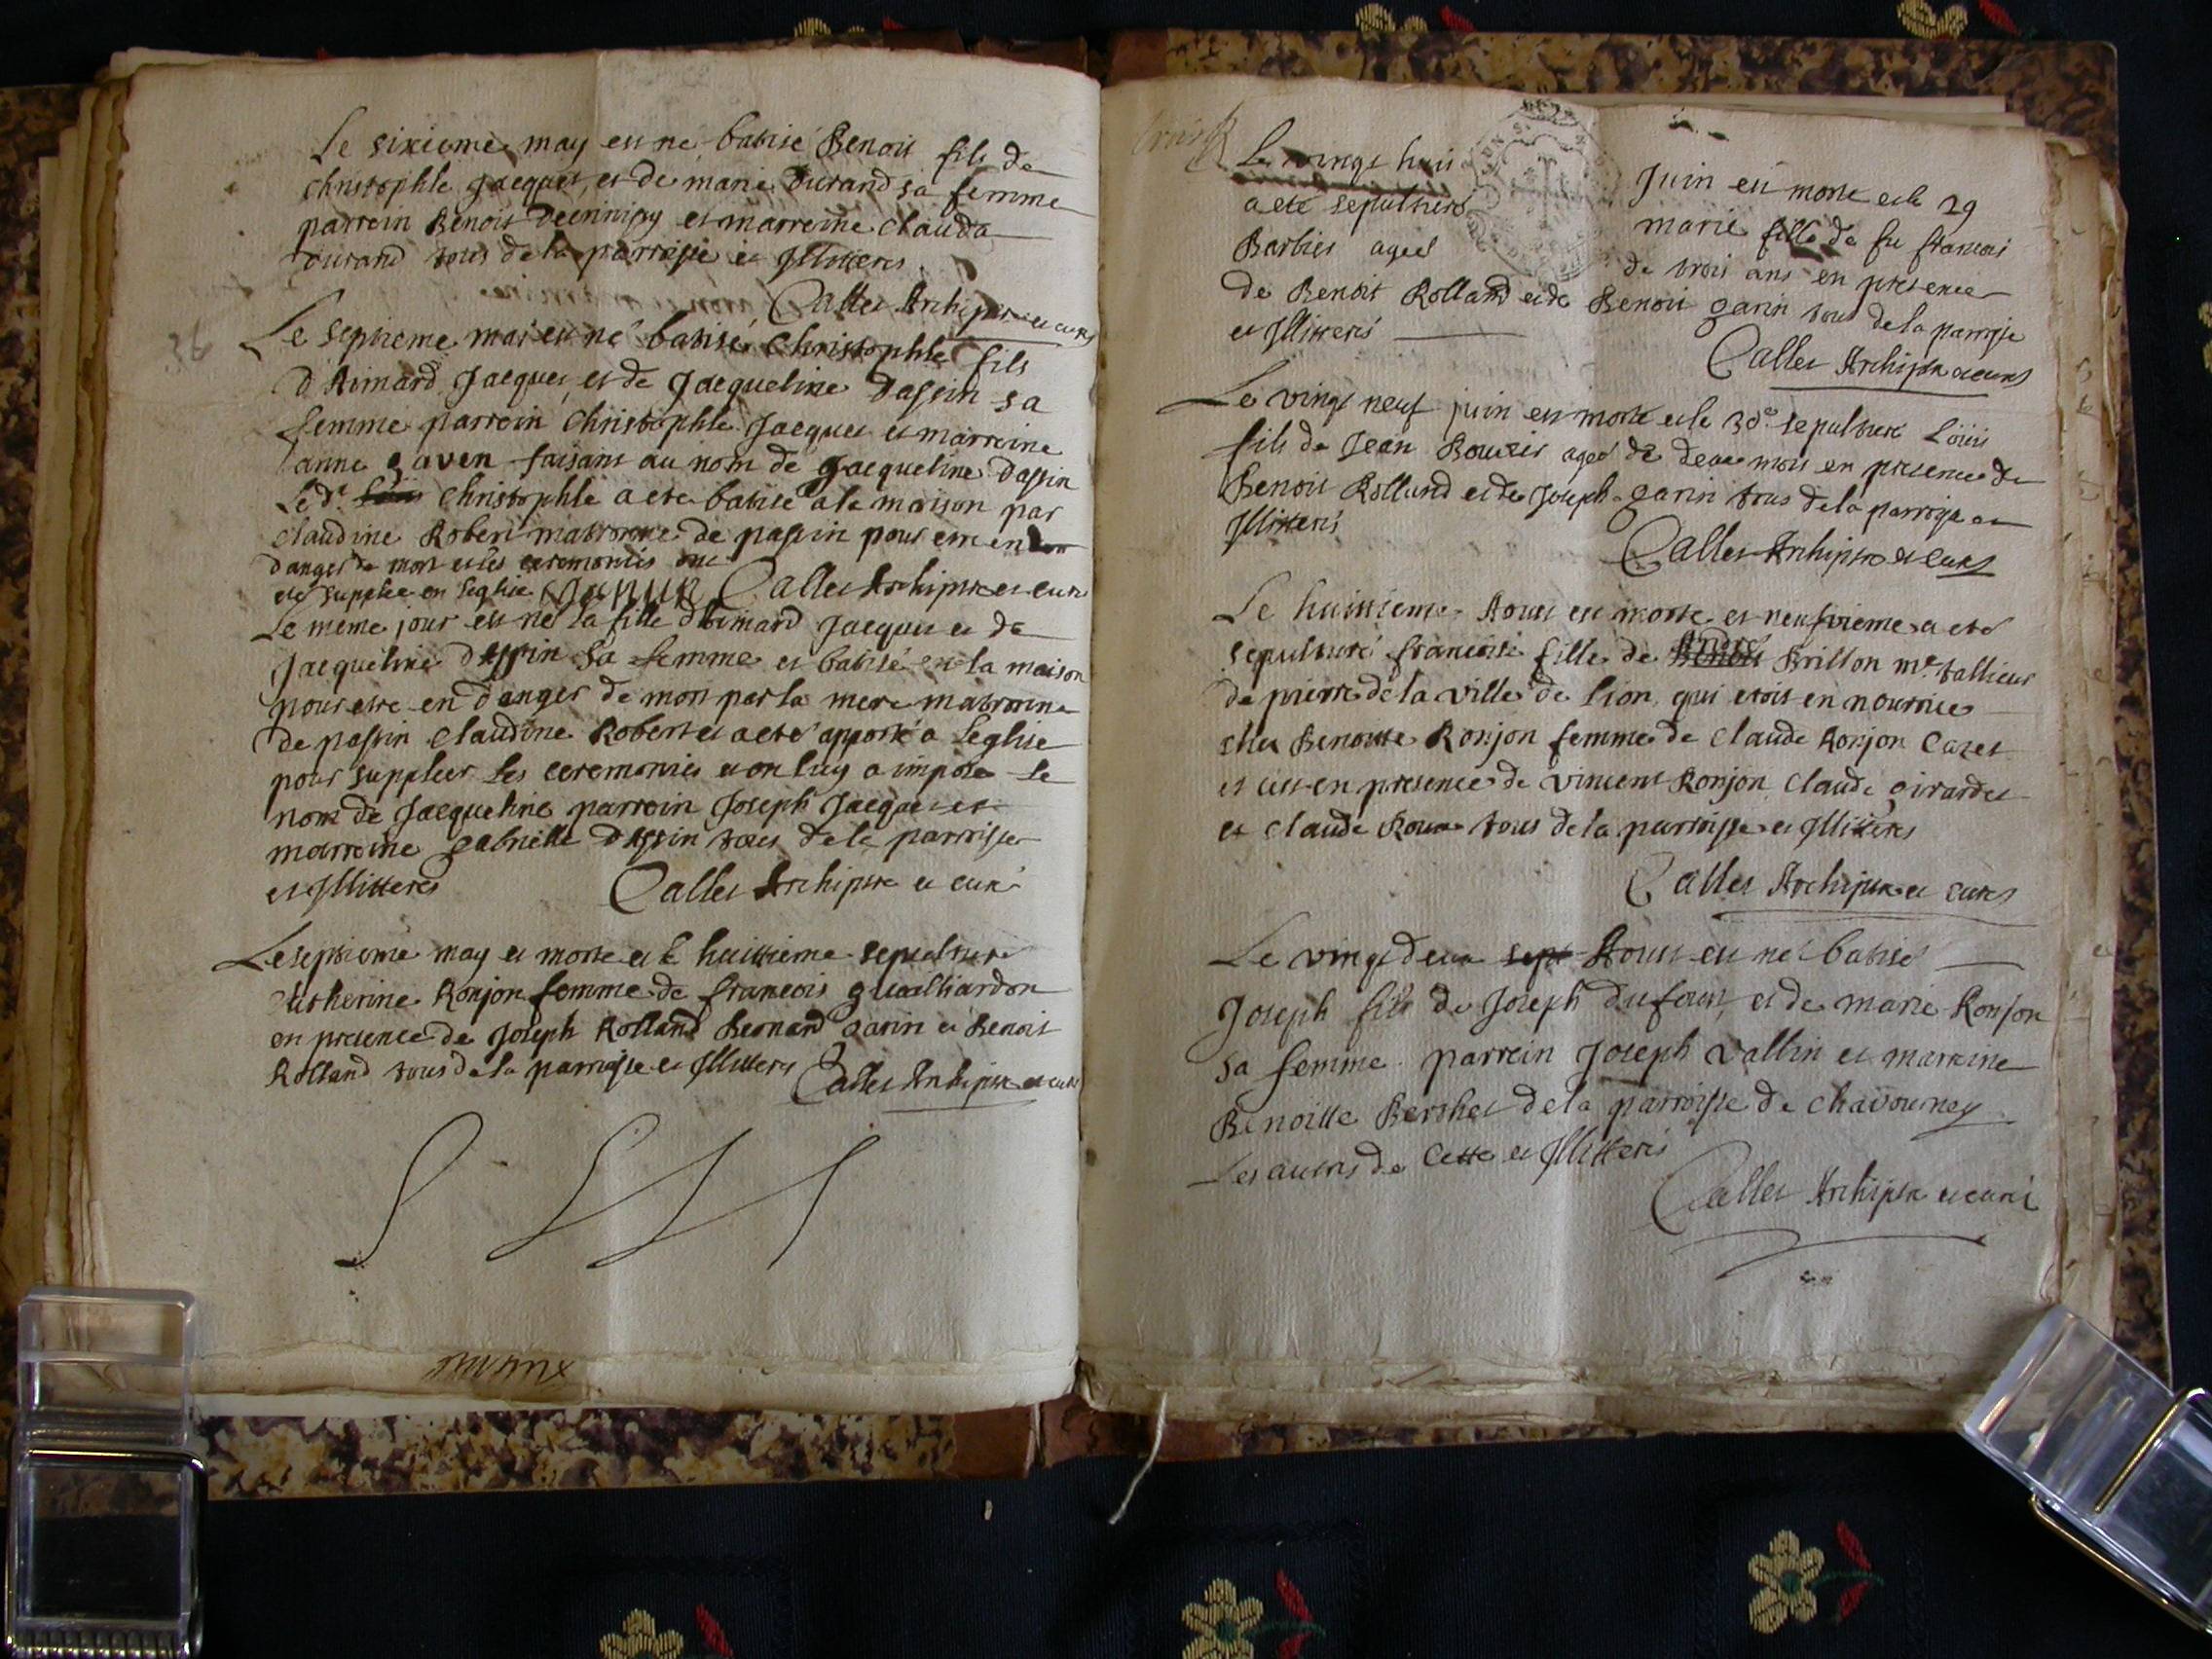 Le sixieme may est né batisé Benoit fils de
christophle Jacques, et de marie Durand sa femme
parrein Benoit et marreine Clauda
Durand tous de la parroisse et Illitteres
Callet Archiptre et curé
Le septieme mai est né batisé Christophle fils
d'Aimard Jacques, et de Jacqueline Dassin sa
femme parrein Christophle Jacques et marreine
anne gaven faisant au nom de Jacqueline Dassin
Le dt christophle a eté batisé a la maison par
claudine Robert matronne de passin pour etre en
danger de mort et les ceremonies ont
eté supplée en leglise Callet Archiptre et curé
Le meme jour est né la fille d'Aimard Jacques et de
Jacqueline Dassin sa femme et batisé en la maison
pour etre en danger de mort par la mere matronne
de passin Claudine Robert et a eté apporté a Leglise
pour suppleer les ceremonies et on luy a imposé le
nom de Jacqueline parrein Joseph Jacques et
marreine gabrielle Dassin tous de la parroisse
et Illitteres Callet Archiptre et curé
Le septieme may et morte et le huittieme sepulturé
Catherine Ronjon femme de francois guailliardon
en presence de Joseph Rolland Bernard garin et Benoit
Rolland tous de la parroisse et Illitteres Callet Archiptre et curé
Le vingt huit Juin est morte et le 29
a eté sepulturé marie fille de fu francois
Barbier ageé de trois ans en presence
de Benoit Rolland et de Benoit garin tous de la parroisse
et Illitterés Callet Archiptre et curé
Le vingt neuf juin est mort et le 30e sepulturé Loüis
fils de Jean Bouvier agé de deux mois en presence de
Benoit Rolland et de Joseph garin tous de la parroisse et
Illitterés
Callet Archiptre et curé
Le huittieme Aoust est morte et neufvieme a eté
sepulturé francoise fille de André Brillon me tallieur
de pierre de la ville de lion, qui etoit en nourrice
ches Benoitte Ronjon femme de claude Ronjon Cazet
et cest en presence de vincent Ronjon Claude girardet
et claude Roux tous de la parroisse et Illitteres
Callet Archiptre et curé
Le vingt deux sept Aoust est né batisé
Joseph fils de Joseph Dufour, et de marie Ronjon
sa femme parrein Joseph vallin et marreine
Benoitte Berthet de la parroisse de chavourney
Les autres de Cette et Illitterés
Callet Archiptre et curé